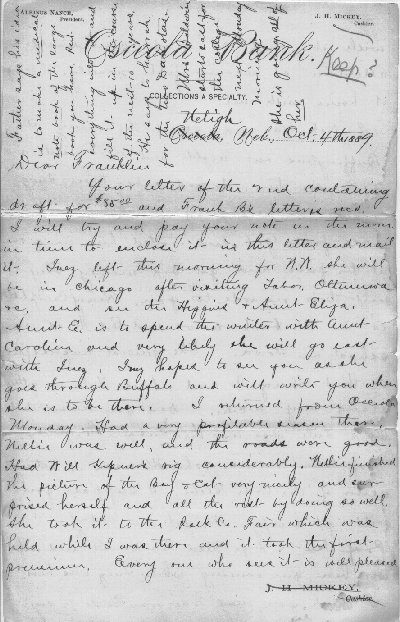 ALBINUS NANCE,
President.
J. H. MICKEY,
Cashier.
Osceola Bank.
Keep?
COLLECTIONS A SPECIALTY.
Neligh
Osceola, Neb., Oct. 4th 1889.
Dear Franklin
Your letter of the 2nd containing
draft for $50.00 and Frank B's letter is rec'd.
I will try and pay your note in the morn
in time to enclose it in this letter and mail
it. Inez left this morning for N.Y. she will
be in Chicago after visiting Tabor, Ottumwa
&c, and see the Higgins & Aunt Eliza.
Aunt E. is to spend the winter with Aunt
Caroline and very likely she will go east
with Inez. Inez hoped to see you as she
goes through Buffalo and will write you when
she is to be there. I returned from Osceola
Monday. Had a very profitable season there.
Nellie was well, and the roads were good.
Had Will rig considerably. Nellie finished
the picture of the Boy & Cat very nicely and sur-
prised herself and all the rest by doing so well.
She took it to the Polk Co. Fair which was
held while I was there and it took the first
premium. Every one who sees it is well pleased
J. H. MICKEY,
Cashier.
Father says his idea
is to make a medical
note book of the large
book you have. Put
everything into it and
fill it up in the course
of the next years.
for the two
starts east for
next Monday
morning.
She is going all of
her